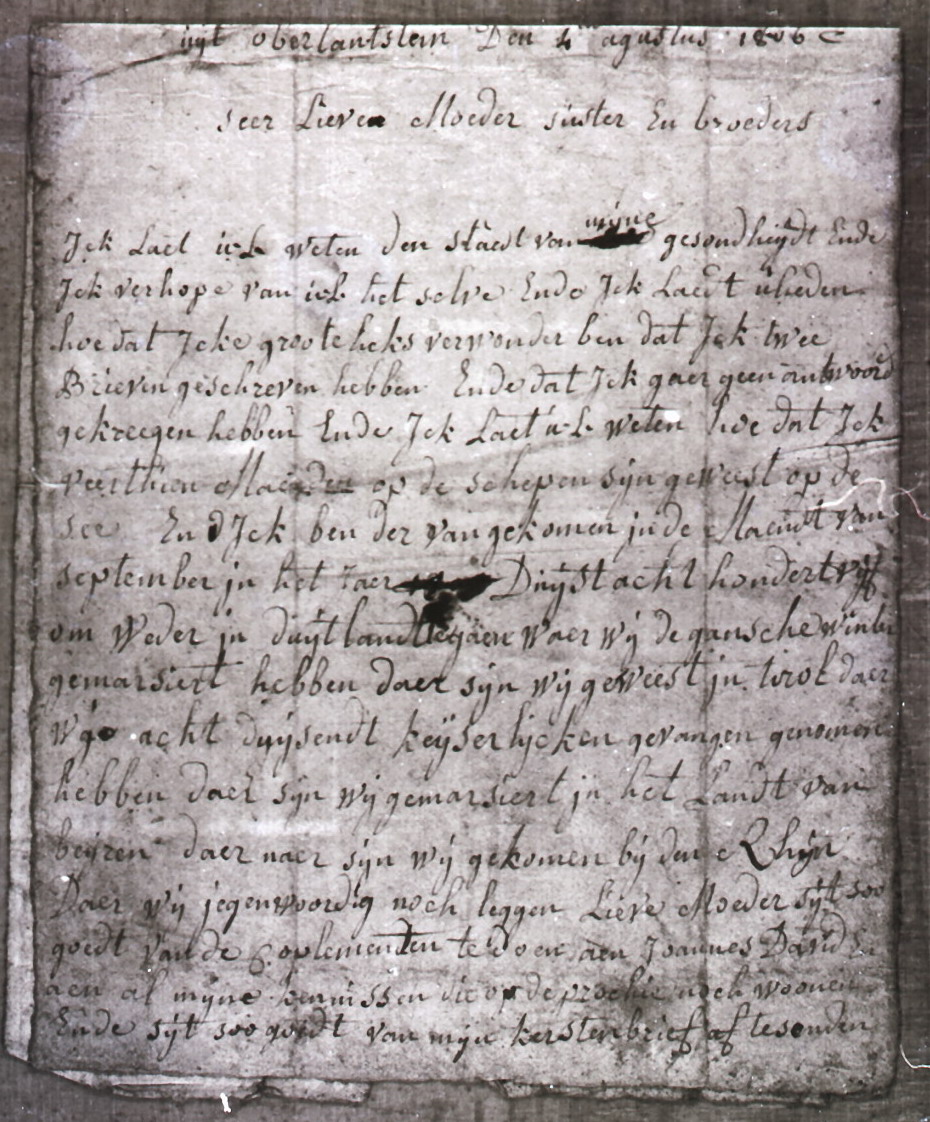 uyt oberlantstein Den 4 agustus 1806
seer Lieven Moeder suster En broeders
Jck Laet u.L. weten den staedt van myne gesondheydt Ende
Jck verhope van u.L. het selve Ende Jck Laedt ulieden
hoe dat Jcke grootelicks verwonder ben dat Jck twee
Brieven geschreven hebben Ende dat Jck gaer geen antwoord
gekreegen hebben Ende Jck Laet u.L. weten hoe dat Jck
veerthien Maenden op de schepen syn geweest op de
see End Jck ben der van gekomen in de Maendt van
september in het Jaer Duyst acht hondert vyf
om Weder in duytlandt te gaen waer wy de gansche winter
gemarsiert hebben daer syn wy geweest in tirol daer
wye acht duysendt keyserlycken gevangen genomen
hebben daer syn wy gemarsiert in het Landt van
beyren daer naer syn wy gekomen by den Rhyn
Daer wy jegenwoordig noch leggen Lieve Moeder syt soo
goedt van de Coplementen te doen aen Joannes David
aen al myne kennissen die op de prochie noch woonen
Ende syt soo goedt van myn kerstenbrief af te sonden